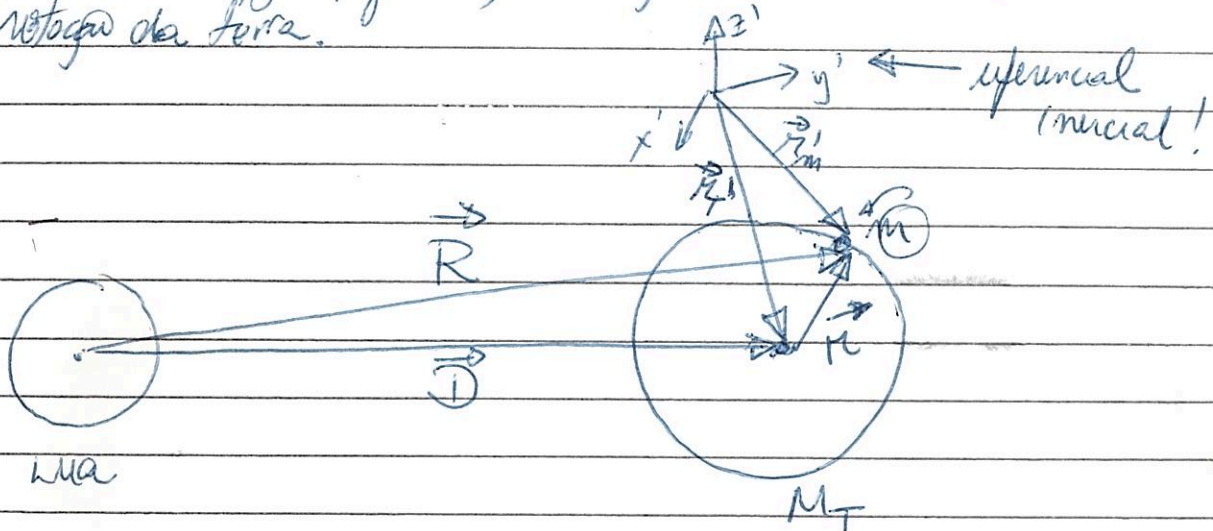 rotação da terra.
z'
y'
referencial
inercial!
x'
r'm
r'T
m
R
r
D
Lua
MT